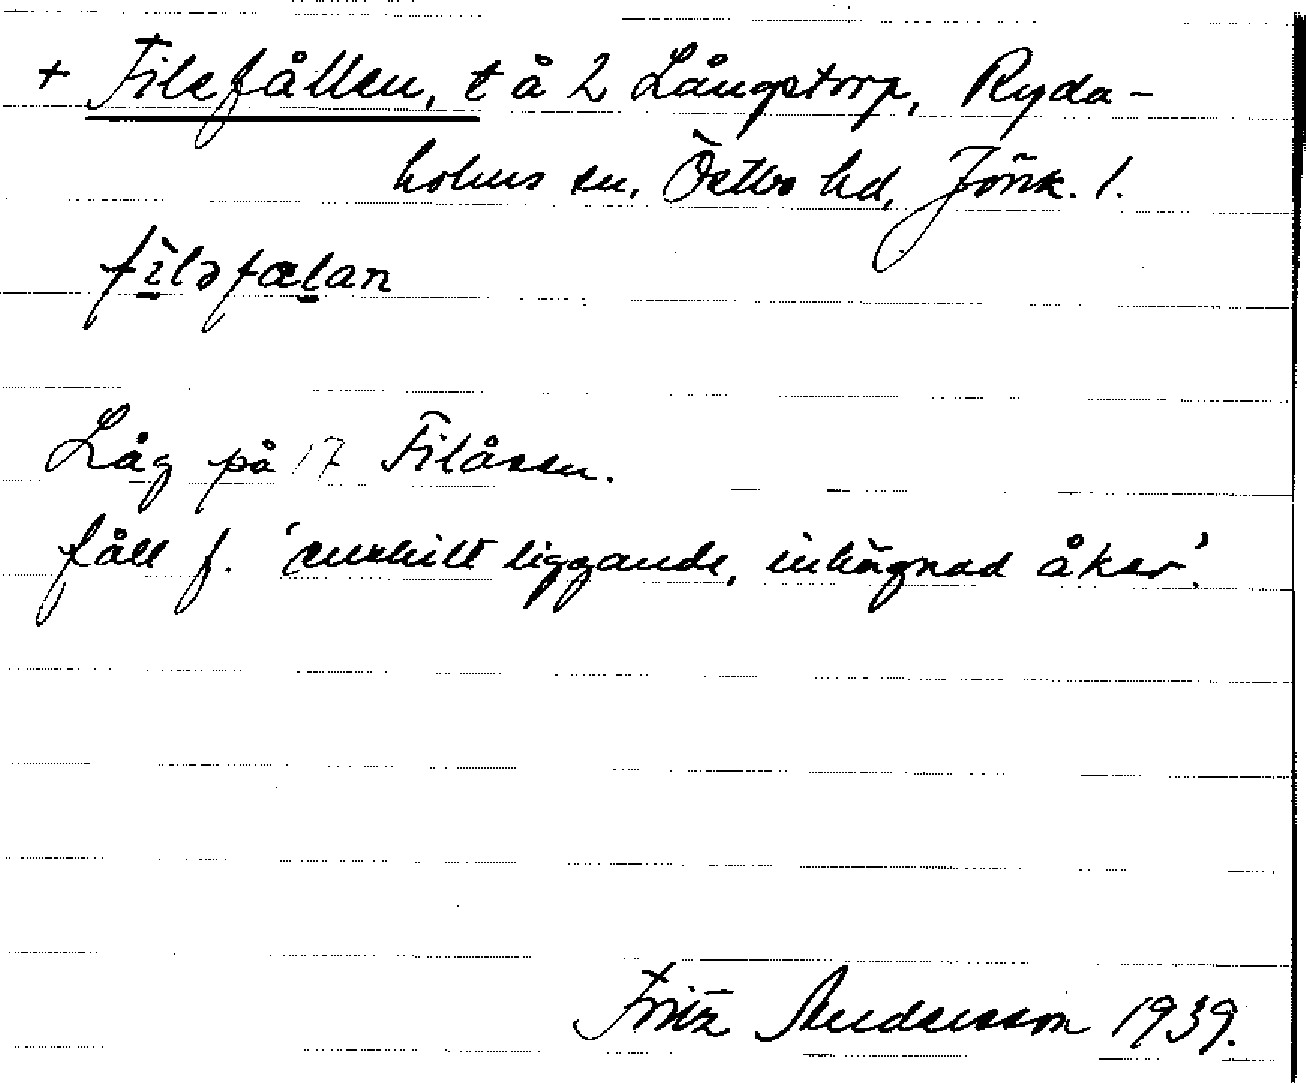 + Filefållen, t å 2 Långstorp, Ryda-
holms sn, Östbo hd, Jönk. l.
fìləfælan
Låg på 17 Filåsen.
fåll f. 'enskilt liggande, inhägnad åker'.
Fritz Andersson 1939.